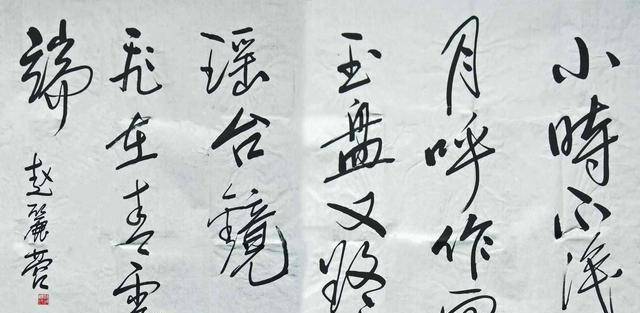 小時不識
月呼作
玉盤又疑
瑶台鏡
飛在青雲
端
趙麗蓉